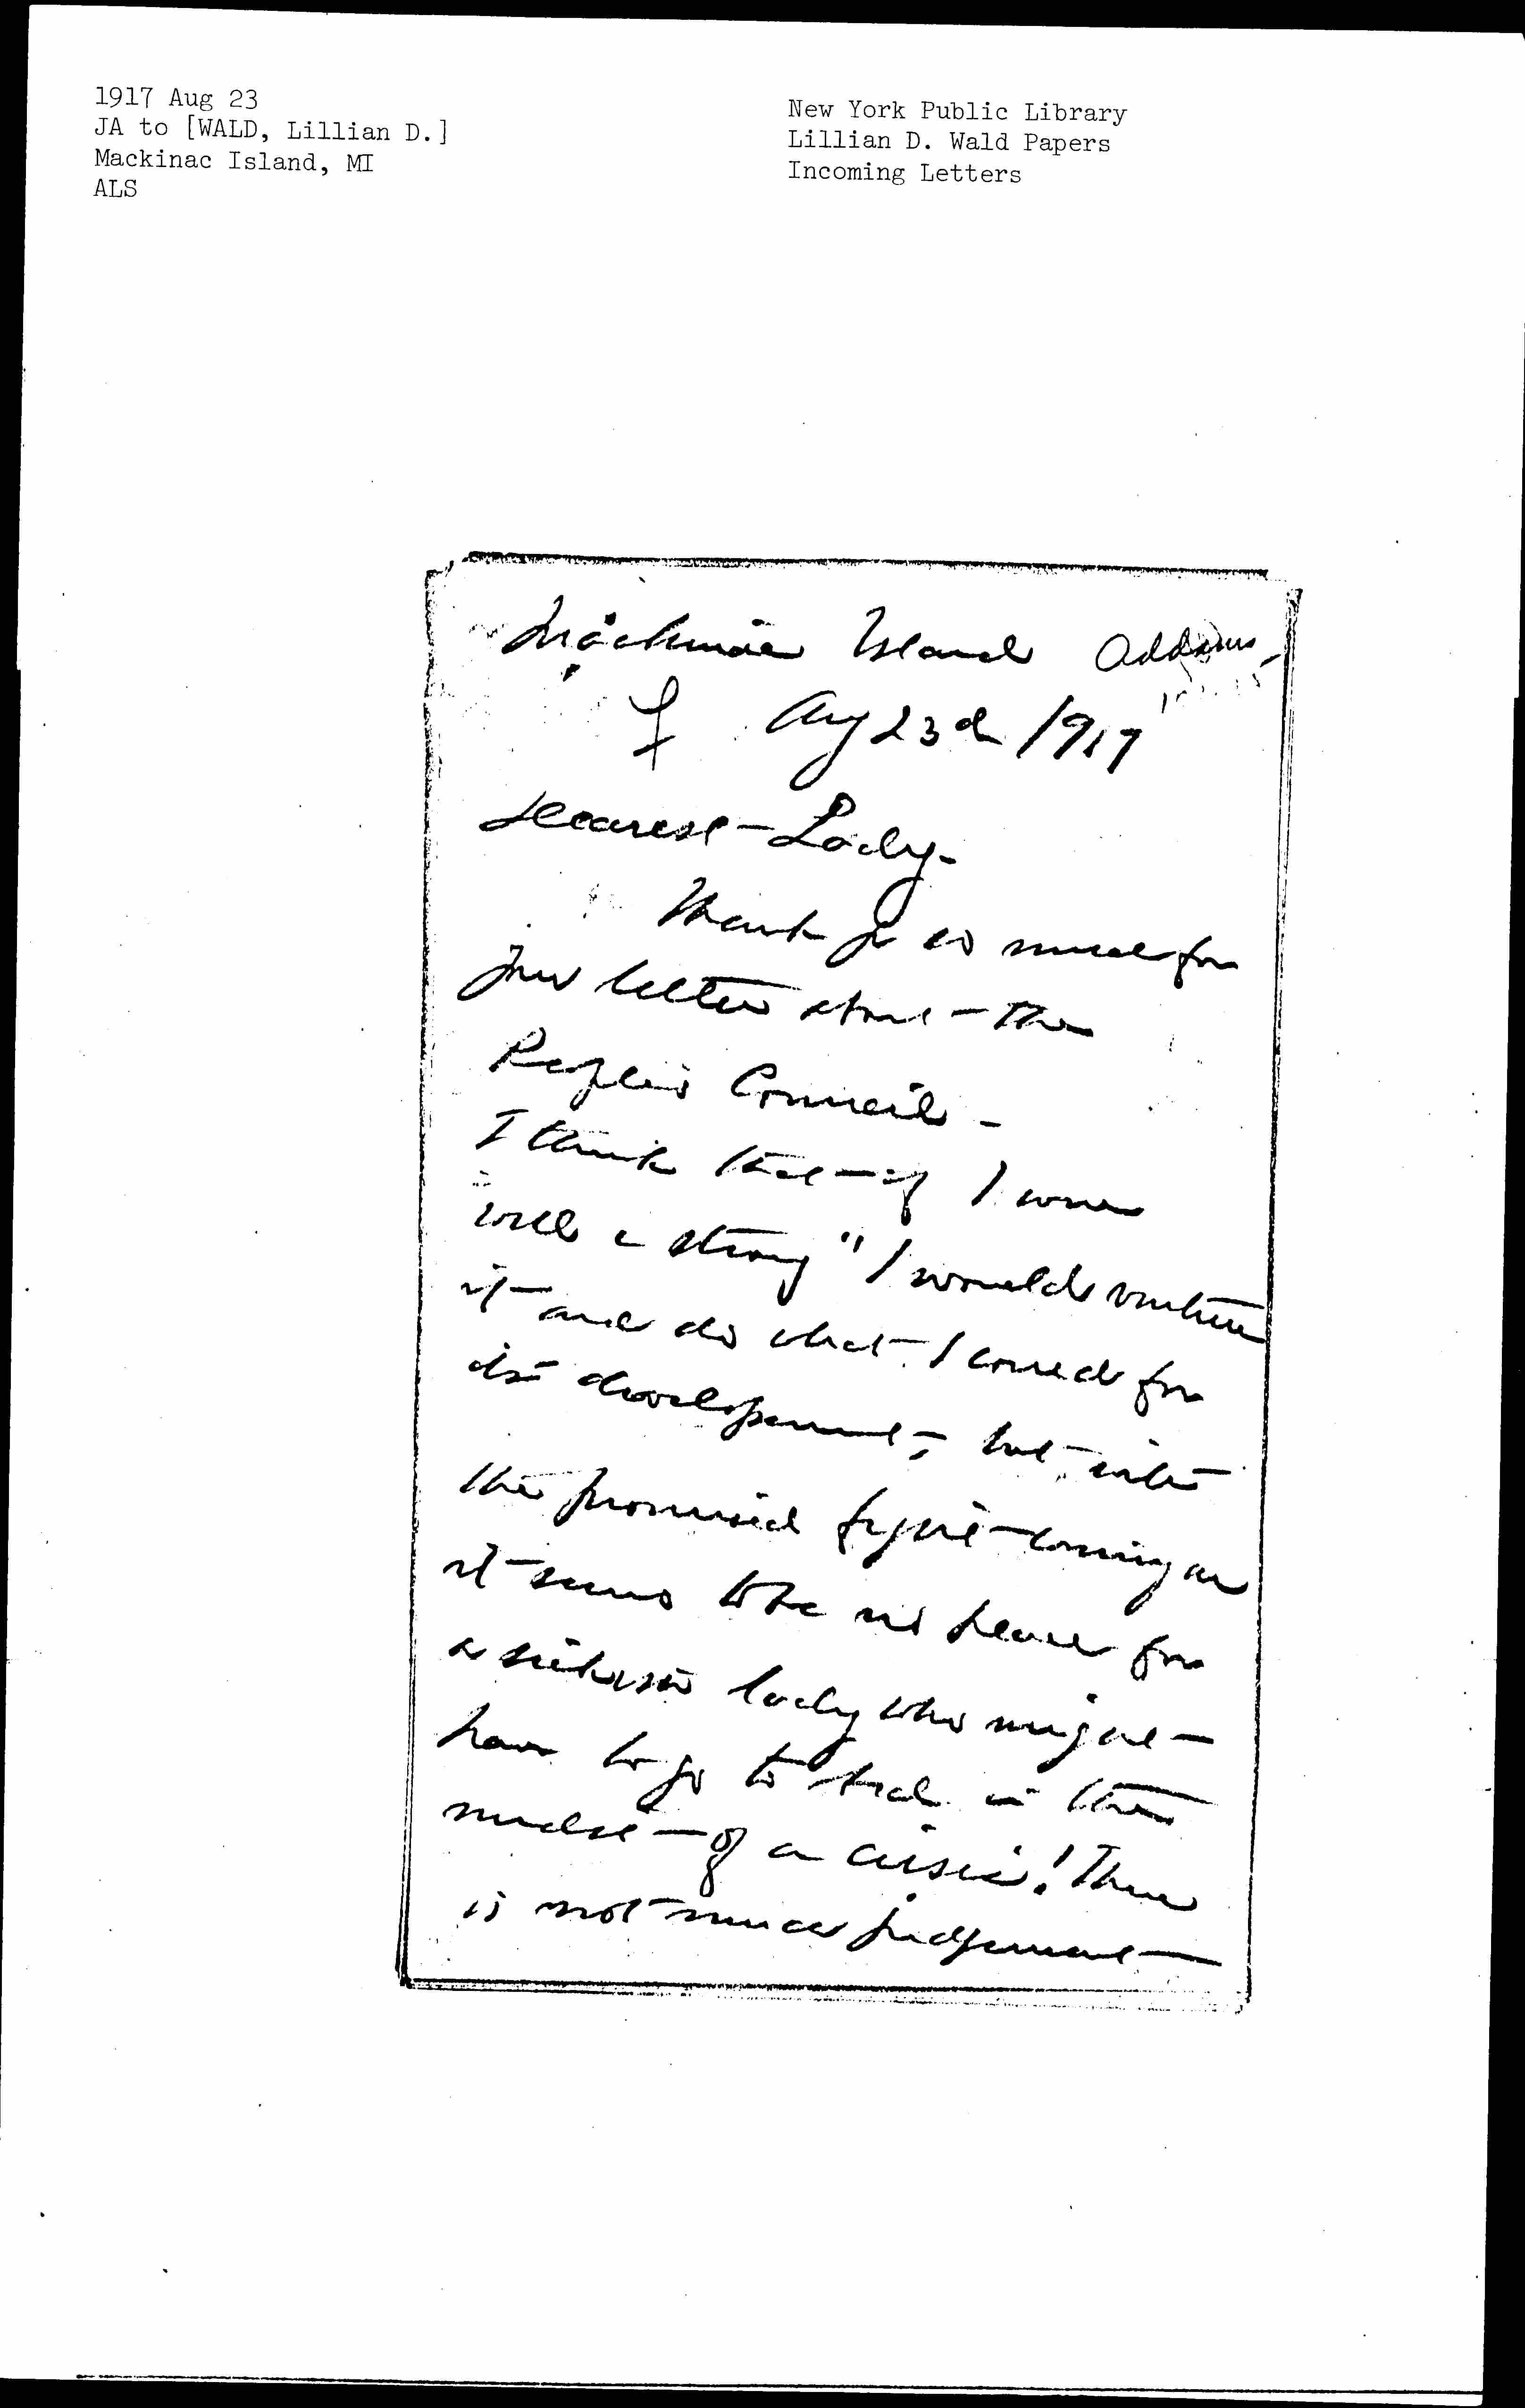 1917 Aug 23
JA to [WALD, Lillian D.]
Mackinac Island, MI
ALS
New York Public Library
Lillian D. Wald Papers
Incoming Letters
Mackinac Island Addams
Aug 23d 1917
Dearest Lady.
Thank you so much for
your letter about the
People's Council -
I think that if I were
well & strong" I would venture
it and do what I could for
its development, but with
the promised fight coming on
it seems to be no place for
a sickish lady who might
have to go to bed in the
midst of a crisis! There
is not much judgement